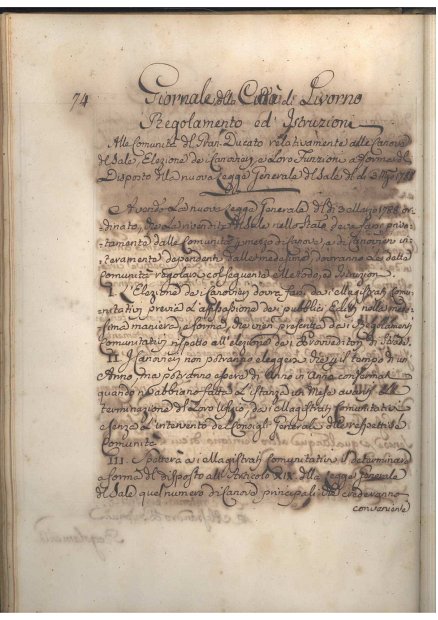 74
Giornale della Città di Livorno
Regolamento ed Istruzioni
Alle Comunità del Gran Ducato relativamente alle Canove
del Sale, Elezione dei Canovieri, e Loro Funzioni a forma del
Disposto della nuova Legge Generale del Sale del dì 3
Avendo La nuova Legge Generale del dì 3 1788 or-
dinato, che La rivendita del Sale nello Stato deva farsi priva-
tamente dalle Comunità, per mezzo di Canove, e di Canovieri in-
teramente dipendenti dalle medesime, dovranno le dette
Comunità regolarsi col seguente Metodo, ed Istruzioni
I. L'Elezione dei Canovieri dovrà farsi dai Magistrati Comu-
nitativi previa l'affissione dei pubblici Editti nella mede-
sima maniera, e forma, che vien prescritta dai Regolamenti
Comunitativi rispetto all'elezione dei Provveditori di Strade.
II. I Canovieri non potranno eleggersi che per il tempo di un
Anno, ma potranno essere di Anno in Anno confermati
quando ne abbiano fatta L'Istanza un Mese avanti alla
terminazione del Loro Ufizio, dai Magistrati Comunitativi
e senza L'intervento dei Consigli Generali delle respettive
Comunità
III. Spetterà ai Magistrati Comunitativi il determinare
a forma del disposto all'Articolo XIX. della Legge Generale
del Sale quel numero di Canove principali che crederanno
conveniente